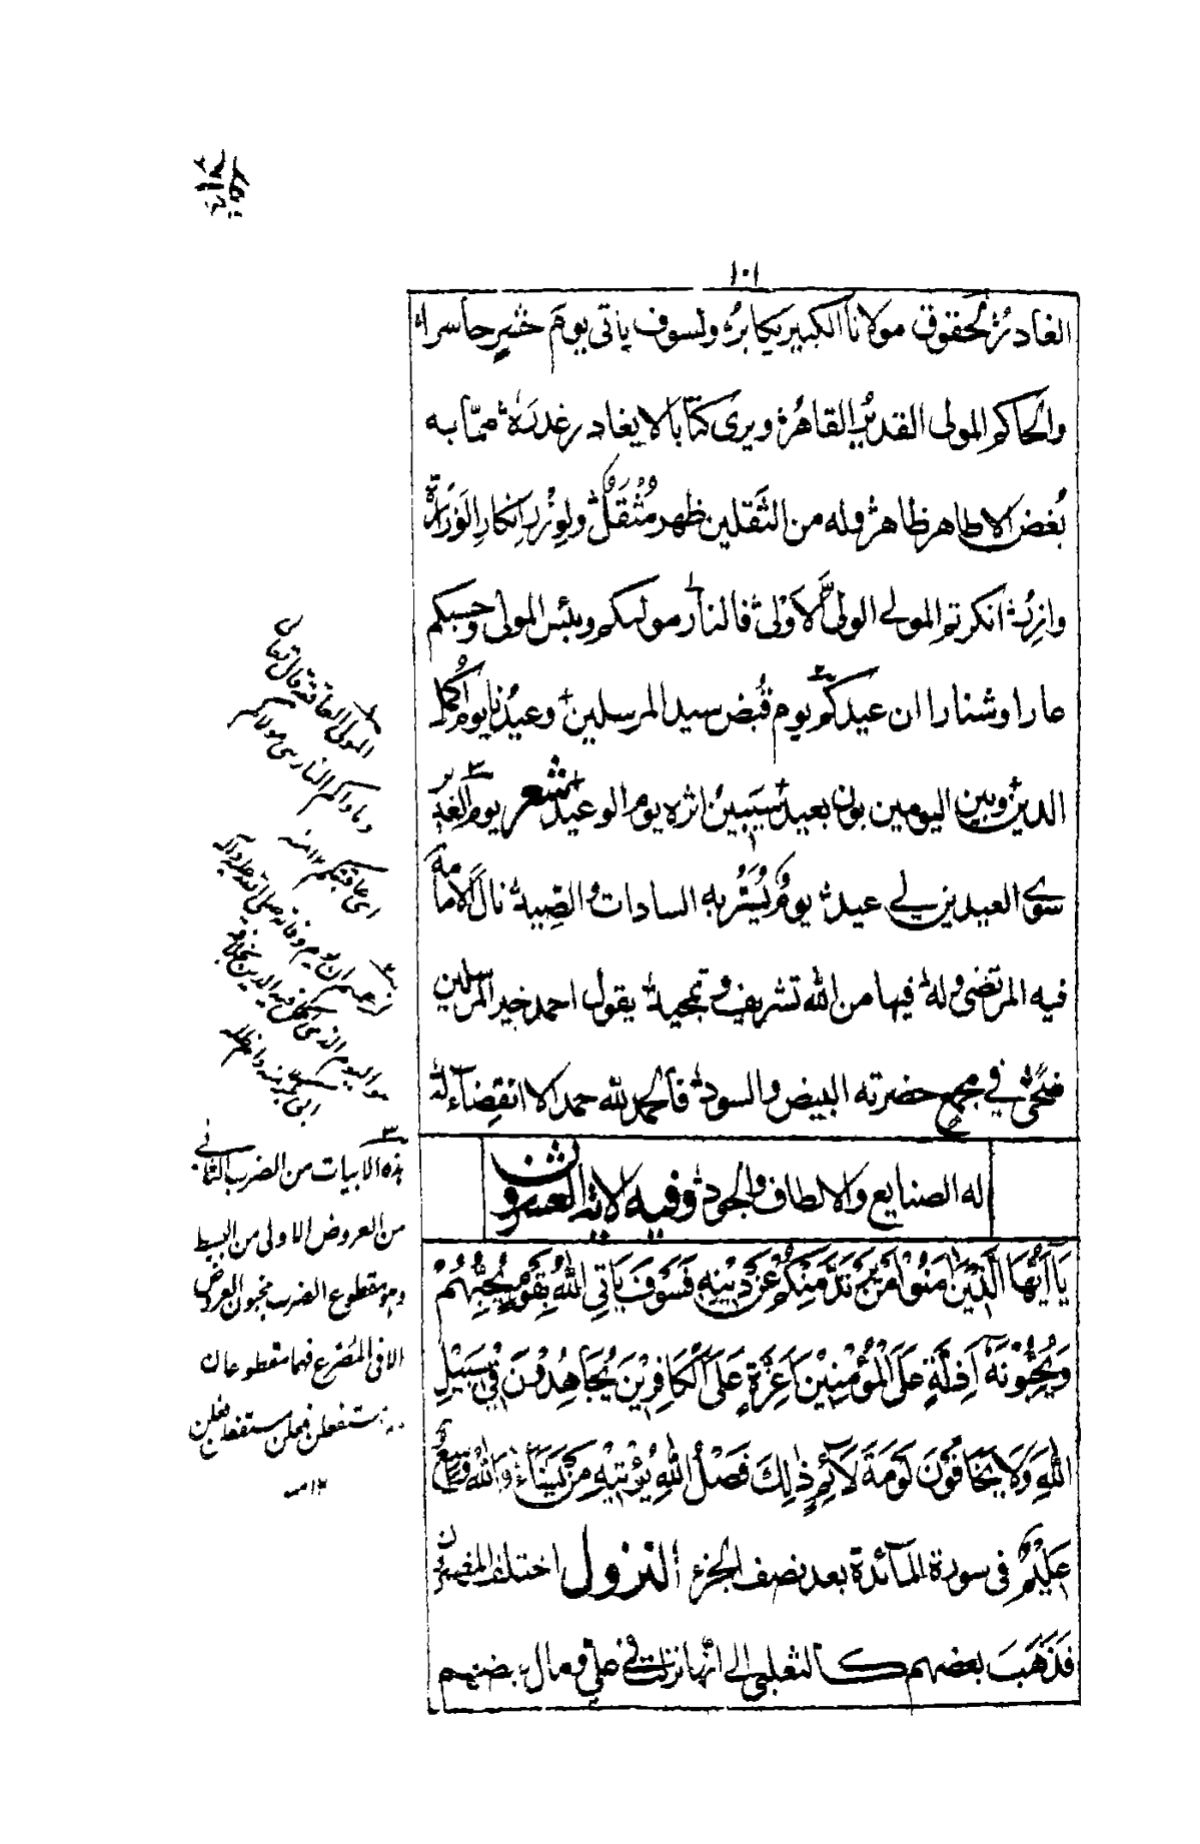 ١٠١
الغادر بحقوق مولانا الكبير يكابر ولسوف ياتى يوم حشر حاسرا
والحاكم المولى القدير القاهر ويرى كتابا لا يغادر غدره مما به
بُغض الاطاهر ظاهر وله من الثقلين ظهر مُثقَل ولوزر انكار الوزارة
وازر انكرتم المولى الولىّ الاَوْلى فالنار موليكم وبئس المولى وحسبكم
عارا وشنارا ان عيدكم يوم قُبض سيد المرسلين وعيدُنا يوم اكمال
الدين وبين اليومين بون بعيد سيَبينُ اثره يوم الوعيد شعر يوم الغدير
سوى العيدين لى عيد يومٌ يُسَرُّ به السادات والصِّيد نال الامامة
فيه المرتضى وله فيها من الله تشريف وتمجيد يقول احمد خير المرسلين
ضُحىً فى مجمع حضرته البيض والسود فالحمد لله حمدا لا انقضاء له
له الصنايع والالطاف والجود وفيه الاية العشرون
يَا اَيُّهَا الَّذِيْنَ اٰمَنُوْا مَنْ يَرْتَدَّ مِنْكُمْ عَنْ دِيْنِهٖ فَسَوْفَ يَاْتِى اللهُ بِقَوْمٍ يُحِبُّهُمْ
وَيُحِبُّوْنَهٗ اَذِلَّةٍ عَلَى الْمُؤْمِنِيْنَ اَعِزَّةٍ عَلَى الْكَافِرِيْنَ يُجَاهِدُوْنَ فِىْ سَبِيْلِ
اللهِ وَلَا يَخَافُوْنَ لَوْمَةَ لَآئِمٍ ذٰلِكَ فَضْلُ اللهِ يُؤْتِيْهِ مَنْ يَشَآءُ وَاللهُ وَاسِعٌ
عَلِيْمٌ فى سورة المآئدة بعد نصف الجزء النزول اختلف المفسرون
فَذَهَبَ بعضهم كالثعلبى الى انّها نزلت فى علىّ ومال بعضهم
المولى العاقبة قال تعالى
وماواكم النار هى مولاكم
اى عاقبتكم ١٢ منه
هذه الابيات من الضرب الثانى
من العروض الاولى من البسيط
وهو مقطوع الضرب مخبون العروض
الا فى المُصرع فهما مقطوعان
مستفعلن فعلن مستفعلن فعلن
١٢ منه